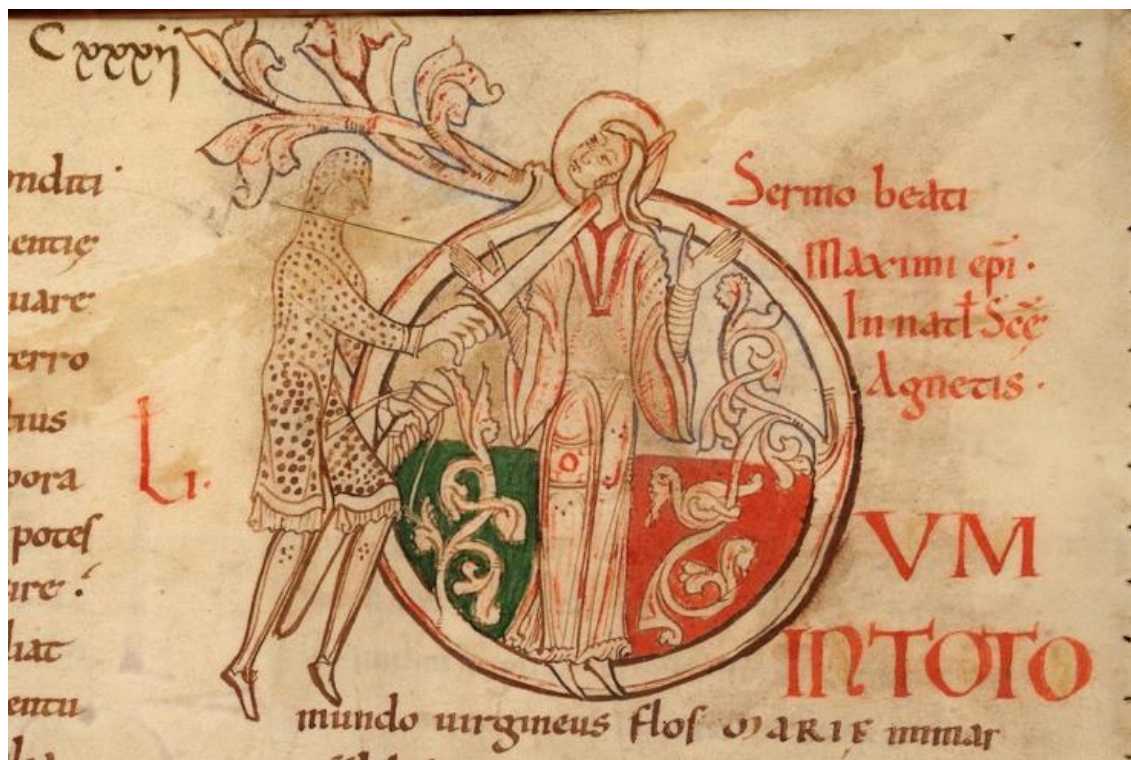 Cxxxii
nditi
entię
uare
ferro
bus
pora
potes
ire
liat
entu
Li.
Sermo beati
Maximi ep̄i.
In nat̄l Scē
Agnetis.
VM
IN TOTO
mundo uirgineus flos MARIE